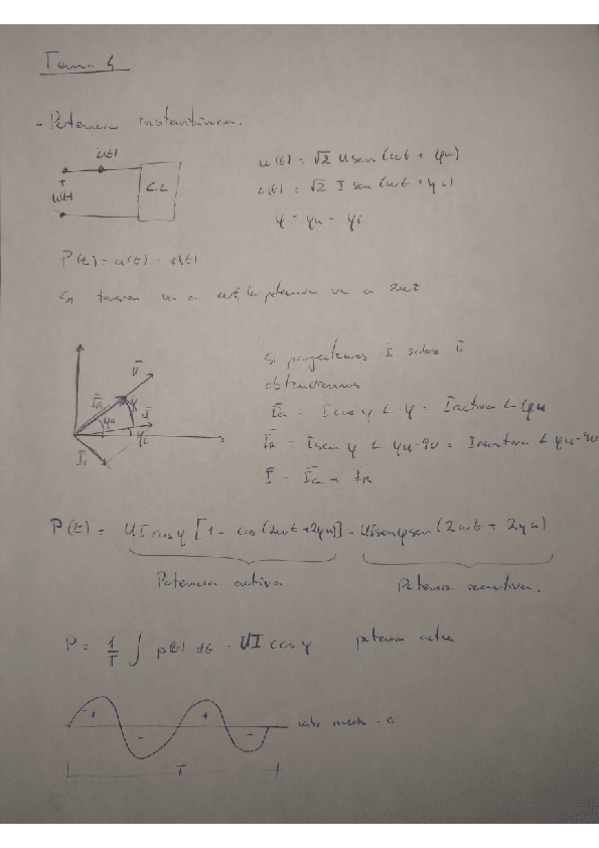 Tema 5
- Potencia instantánea.
i(t)
u(t) = √2 U sen (ωt + φu)
+
u(t)
C.L
i(t) = √2 I sen (ωt + φi)
φ = φu - φi
P(t) = u(t) · i(t)
Si tension va a ωt la potencia va a 2ωt
Si proyectamos I sobre Ū
obtendremos
Ū
Īa
φ
Ī
φu
φi
Īr
Īa = I cos φ ∠ φ = I activa ∠ φu
ĪR = I sen φ ∠ φu-90 = I reactiva ∠ φu-90
Ī = Īa + ĪR
P(t) = UI cos φ [1 - cos (2ωt + 2φu)] - UI sen φ sen (2ωt + 2φu)
Potencia activa
Potencia reactiva.
P = 1/T ∫ p(t) dt = UI cos φ potencia activa
+ - + -
valor medio = 0
T